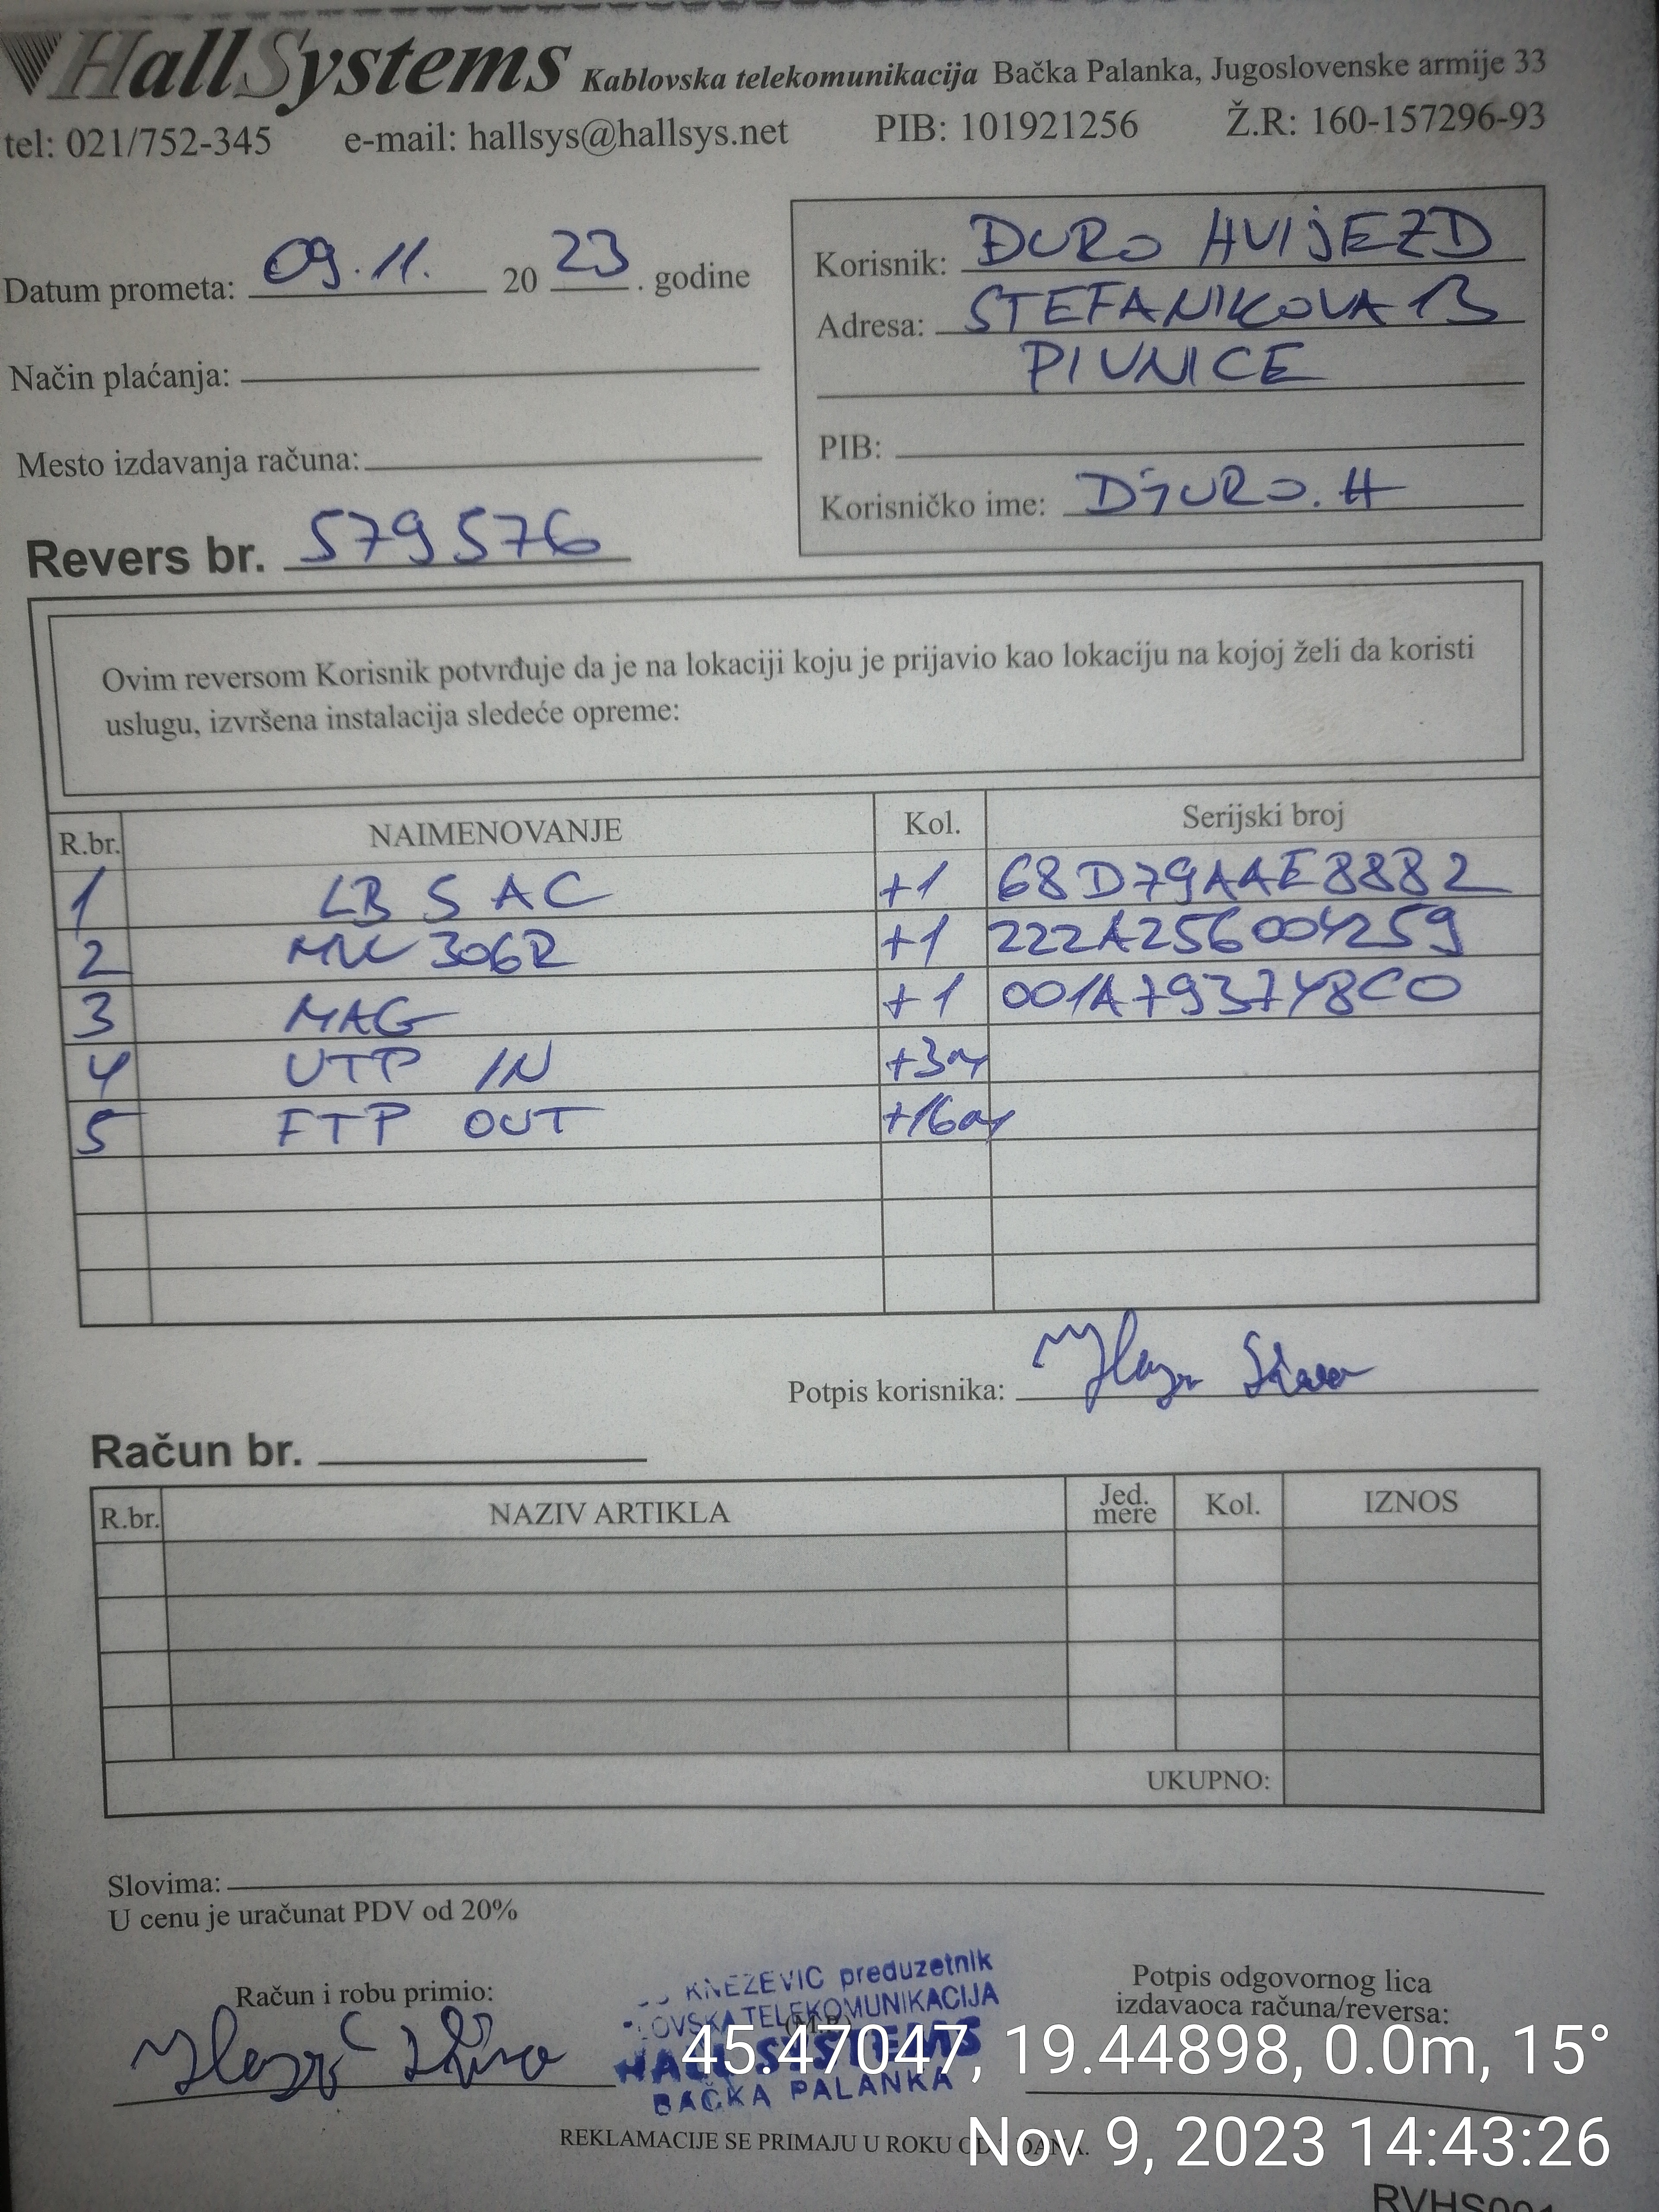 HallSystems Kablovska telekomunikacija Bačka Palanka, Jugoslovenske armije 33
tel: 021/752-345 e-mail: hallsys@hallsys.net PIB: 101921256 Ž.R: 160-157296-93
Datum prometa: 09.11. 20 23 . godine
Način plaćanja:
Mesto izdavanja računa:
Korisnik: ĐURO HVIJEZD
Adresa: STEFANIKOVA 13
PIVNICE
PIB:
Korisničko ime: DJURO.H
Revers br. 579576
Ovim reversom Korisnik potvrđuje da je na lokaciji koju je prijavio kao lokaciju na kojoj želi da koristi
uslugu, izvršena instalacija sledeće opreme:
R.br. NAIMENOVANJE Kol. Serijski broj
1 LB 5 AC +1 68D79AAE8882
2 306R +1 222A256004259
3 MAG +1 001A793748C0
4 UTP IN +3m
5 FTP OUT +16m
Potpis korisnika:
Račun br.
R.br. NAZIV ARTIKLA Jed. mere Kol. IZNOS
UKUPNO:
Slovima:
U cenu je uračunat PDV od 20%
Račun i robu primio:
KNEZEVIC preduzetnik
TELEKOMUNIKACIJA
HALL SYSTEMS
BAČKA PALANKA
Potpis odgovornog lica
izdavaoca računa/reversa:
45.47047, 19.44898, 0.0m, 15°
REKLAMACIJE SE PRIMAJU U ROKU DANA.
Nov 9, 2023 14:43:26
RVHS001